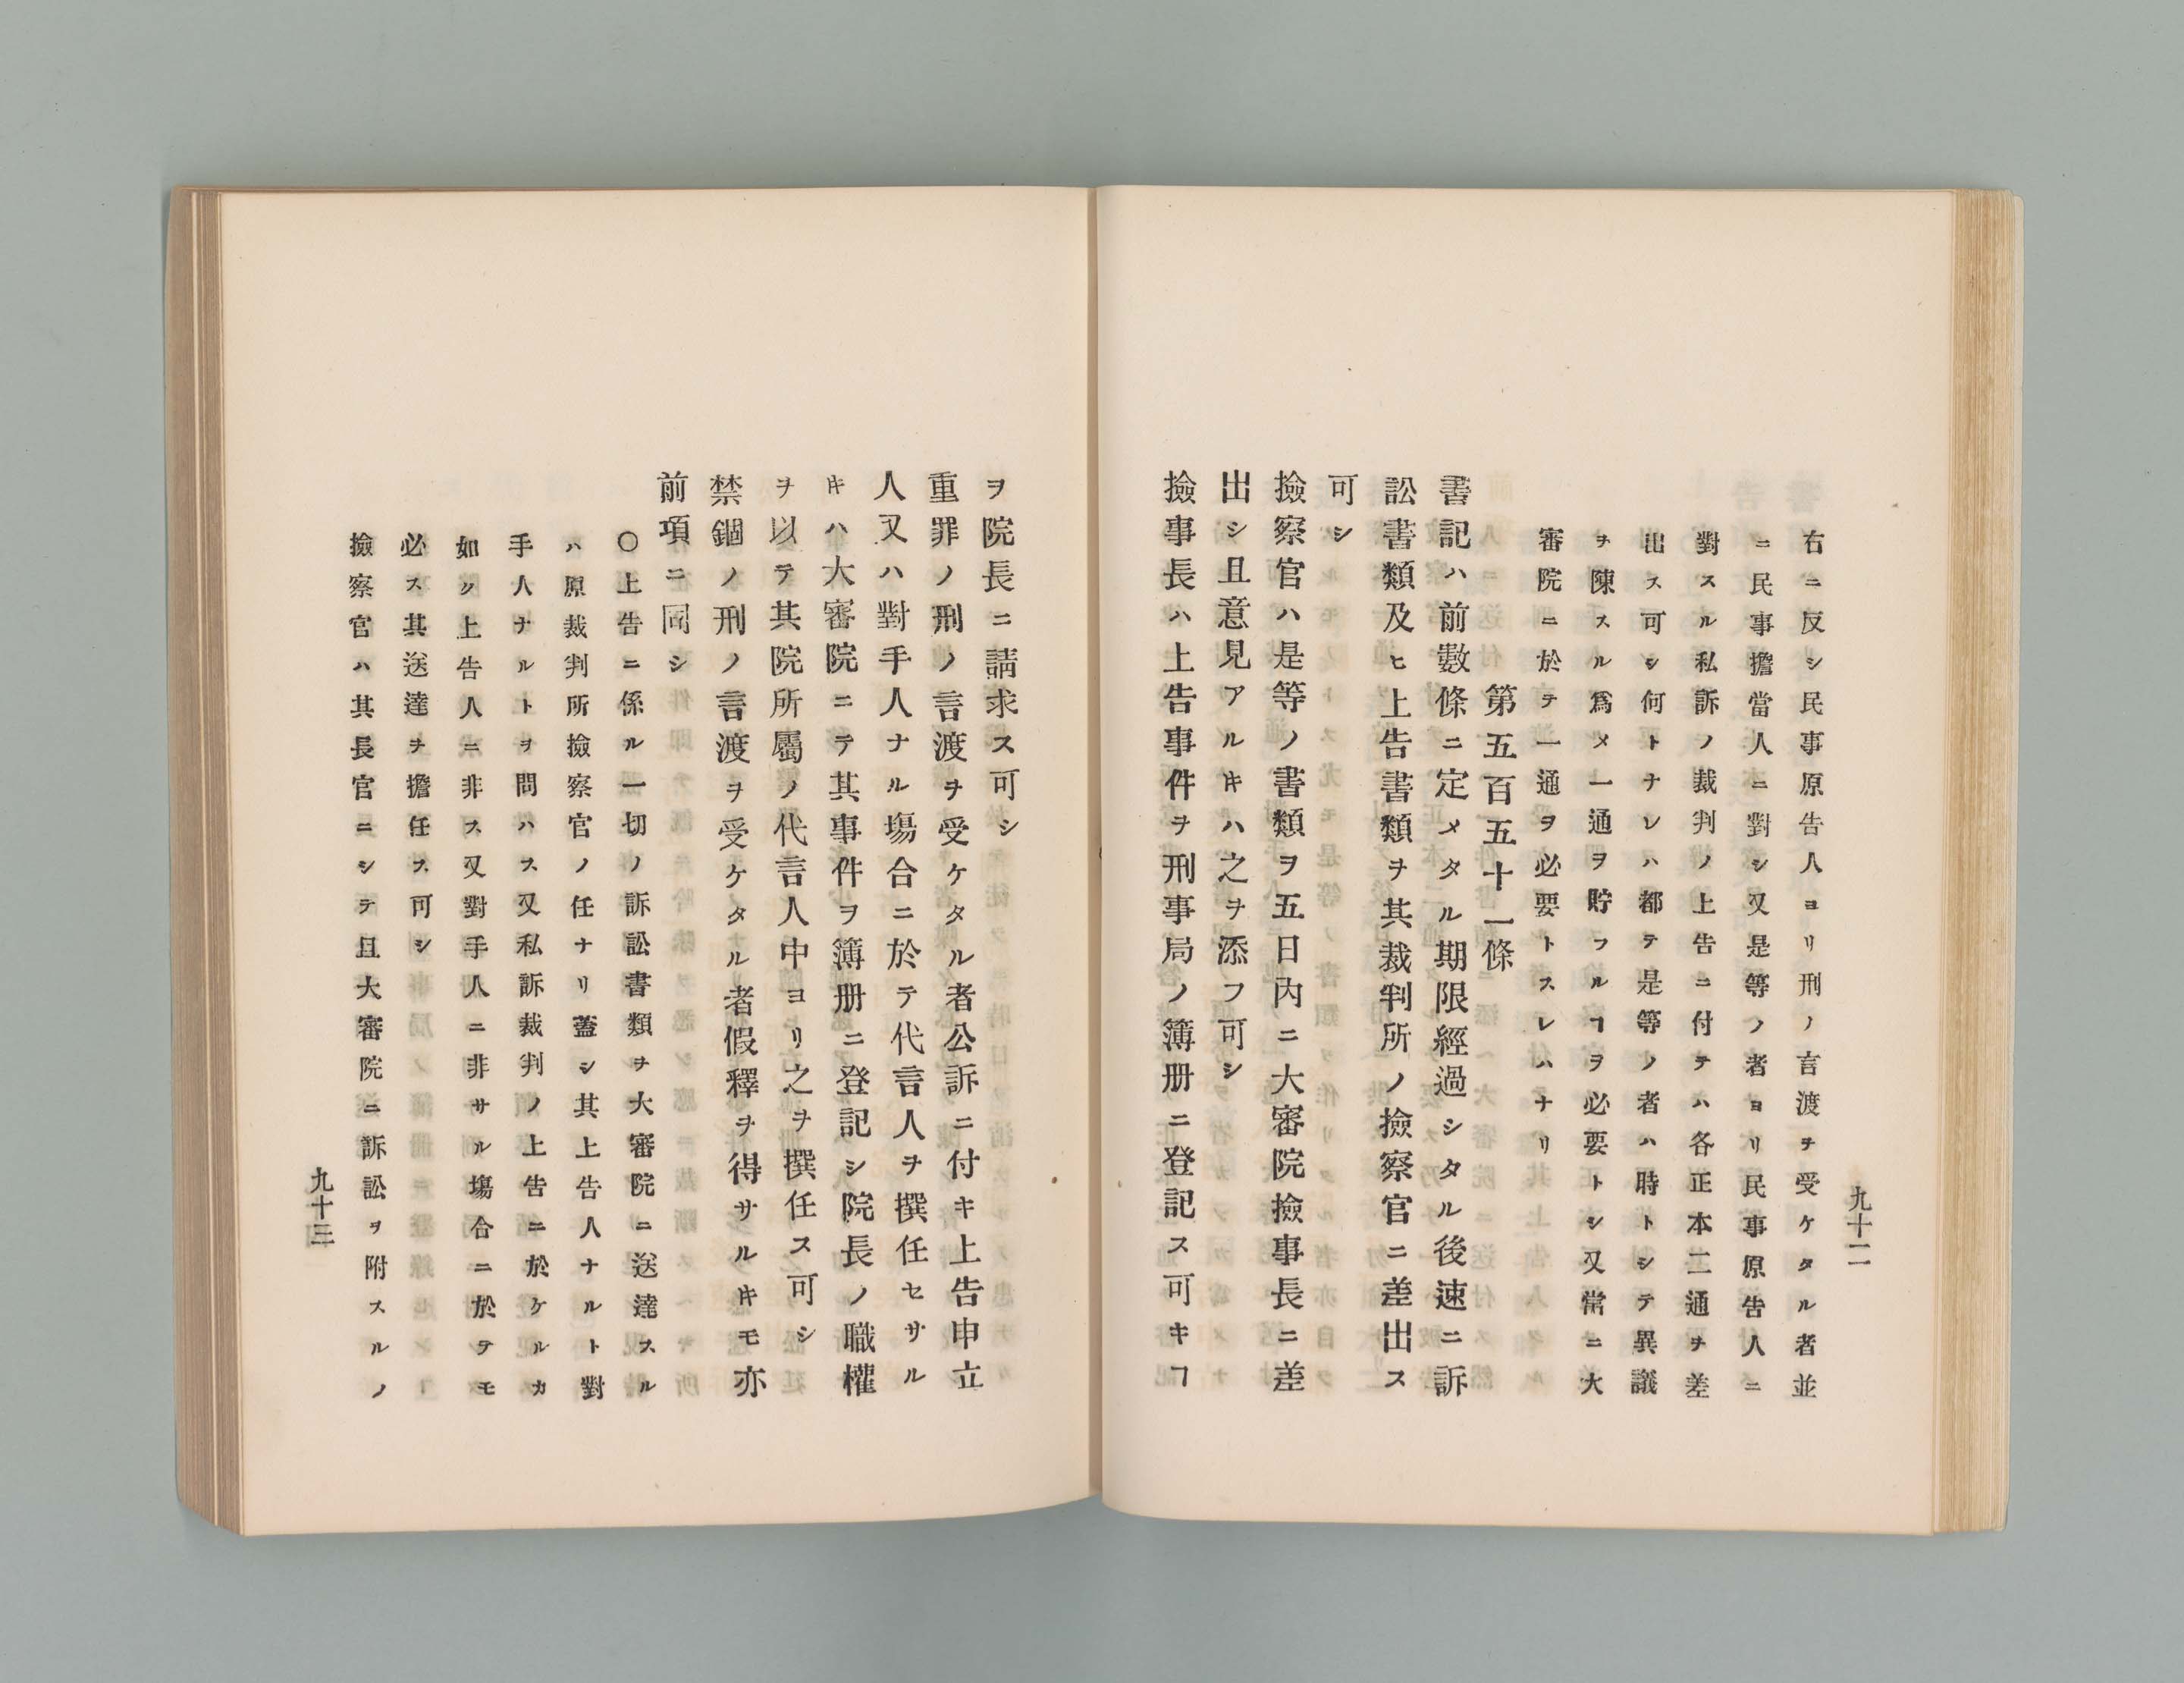 九十二
右ニ反シ民事原告人ヨリ刑ノ言渡ヲ受ケタル者並
ニ民事擔當人ニ對シ又是等ノ者ヨリ民事原告人ニ
對スル私訴ノ裁判ノ上告ニ付テハ各正本二通ヲ差
出ス可シ何トナレハ都テ是等ノ者ハ時トシテ異議
ヲ陳スル爲メ一通ヲ貯フルヿヲ必要トシ又常ニ大
審院ニ於テ一通ヲ必要トスレハナリ
第五百五十一條
書記ハ前數條ニ定メタル期限經過シタル後速ニ訴
訟書類及ヒ上告書類ヲ其裁判所ノ撿察官ニ差出ス
可シ
撿察官ハ是等ノ書類ヲ五日內ニ大審院撿事長ニ差
出シ且意見アルキハ之ヲ添フ可シ
撿事長ハ上告事件ヲ刑事局ノ簿册ニ登記ス可キヿ
ヲ院長ニ請求ス可シ
重罪ノ刑ノ言渡ヲ受ケタル者公訴ニ付キ上告申立
人又ハ對手人ナル塲合ニ於テ代言人ヲ撰任セサル
𪜈ハ大審院ニテ其事件ヲ簿册ニ登記シ院長ノ職權
ヲ以テ其院所屬ノ代言人中ヨリ之ヲ撰任ス可シ
禁錮ノ刑ノ言渡ヲ受ケタル者假釋ヲ得サルキモ亦
前項ニ同シ
〇上告ニ係ル一切ノ訴訟書類ヲ大審院ニ送達スル
ハ原裁判所撿察官ノ任ナリ蓋シ其上告人ナルト對
手人ナルトヲ問ハス又私訴裁判ノ上告ニ於ケルカ
如ク上告人ニ非ス又對手人ニ非サル塲合ニ於テモ
必ス其送達ヲ擔任ス可シ
撿察官ハ其長官ニシテ且大審院ニ訴訟ヲ附スルノ
九十三